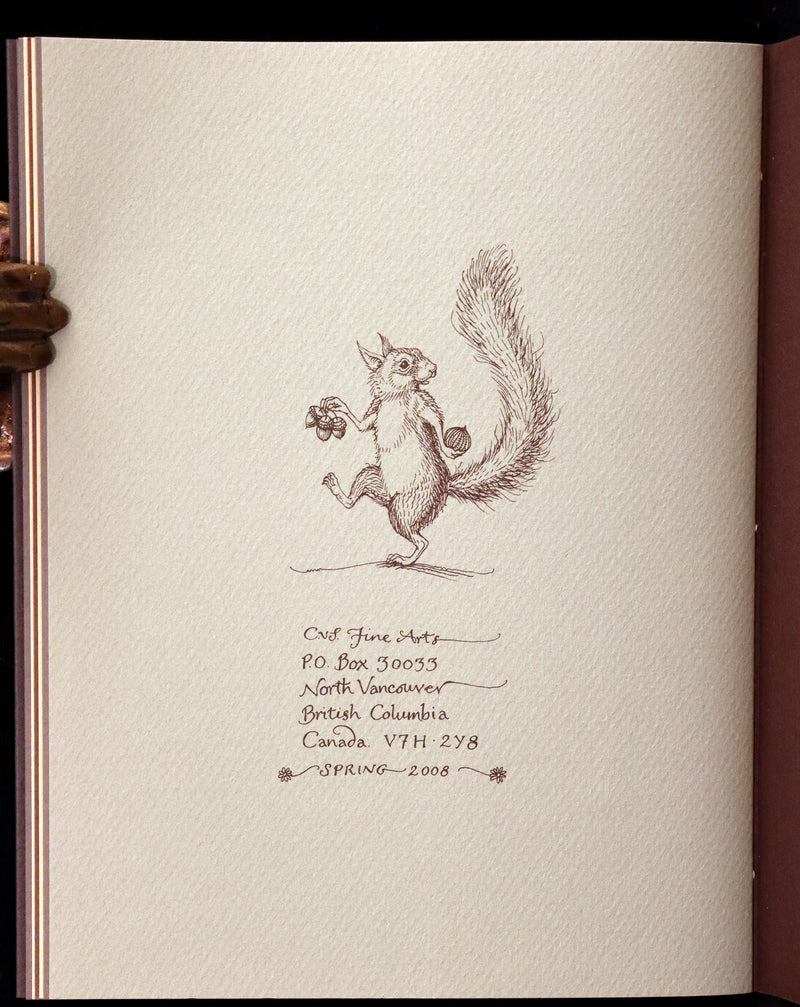 C.v.S. Fine Arts
P.O. Box 30033
North Vancouver
British Columbia
Canada. V7H·2Y8
SPRING 2008